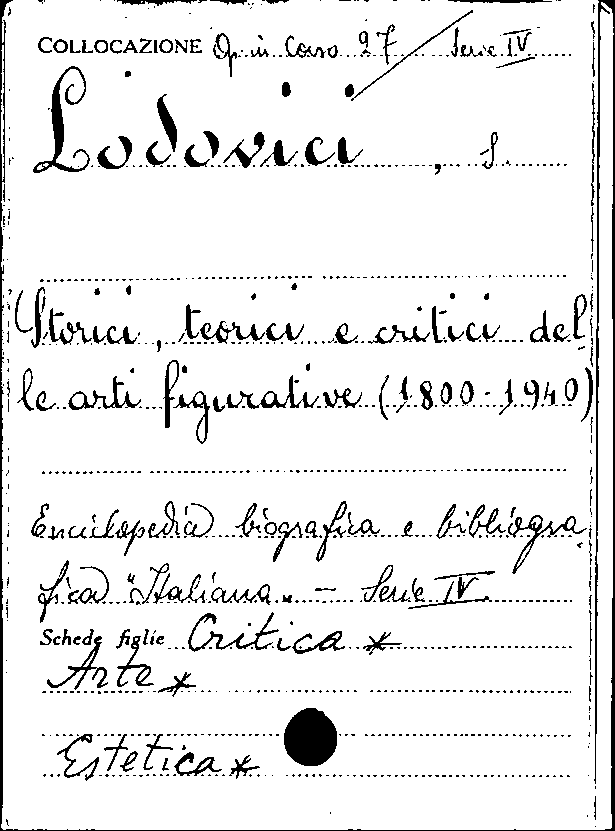 COLLOCAZIONE Op. in Corso 27 / Serie IV
Lodovici, S.
Storici, teorici e critici del
le arti figurative (1800-1940)
Enciclopedia biografica e bibliogra
fica "Italiana" - Serie IV.
Schede figlie Critica *
Arte *
Estetica *